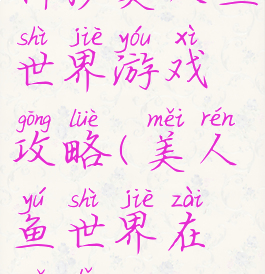 shì jiè yóu xì
世界游戏
gōng lüè měi rén
攻略(美人
yú shì jiè zài
鱼世界在